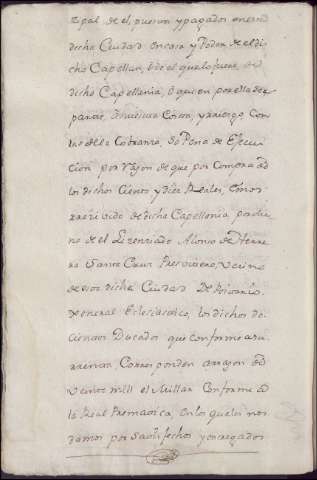 zipal de el, puestos y pagados en esta
dicha Ciudad en casa y Poder de el di-
cho Capellan, o de el que lo fuere de
dicha Capellania, o quien por ella sea
parte, a nuestra Costa, y riesgo Con
las de la Cobranza, So Pena de Execu-
cion por razon de que por Compra de
los dichos Ciento y diez Reales, emos
rrecivido de dicha Capellania, por ma-
no de el Lizenziado Alonso de Herre
ra Santa Cruz Presvitero, Vecino
de esta dicha Ciudad
General Eclesiastico, los dichos do-
cientos Ducados que conforme a su
rrenta, Corresponden a rrazon de
Veinte mill el Millar Conforme a
la Real Prematica, en los quales nos
damos por Satisfechos y entregados